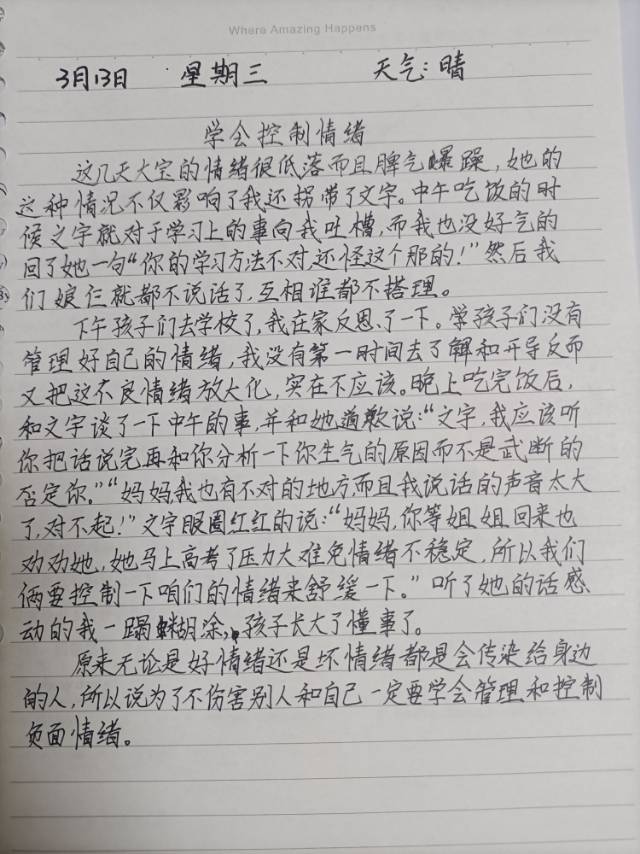 Where Amazing Happens
3月13日 星期三 天气:晴
学会控制情绪
这几天大宝的情绪很低落而且脾气爆躁,她的
这种情况不仅影响了我还拐带了文字。中午吃饭的时
候文字就对于学习上的事向我吐槽,而我也没好气的
回了她一句“你的学习方法不对,还怪这个那的!”然后我
们娘仨就都不说话了,互相谁都不搭理。
下午孩子们去学校了,我在家反思了一下。学孩子们没有
管理好自己的情绪,我没有第一时间去了解和开导反而
又把这不良情绪放大化,实在不应该。晚上吃完饭后,
和文字谈了一下中午的事,并和她道歉说:“文字,我应该听
你把话说完再和你分析一下你生气的原因而不是武断的
否定你。”“妈妈我也有不对的地方,而且我说话的声音太大
了,对不起!”文字眼圈红红的说:“妈妈,你等姐姐回来也
劝劝她,她马上高考了压力大难免情绪不稳定,所以我们
俩要控制一下咱们的情绪来舒缓一下。”听了她的话感
动的我一蹋糊涂,孩子长大了懂事了。
原来无论是好情绪还是坏情绪都是会传染给身边
的人,所以说为了不伤害别人和自己一定要学会管理和控制
负面情绪。